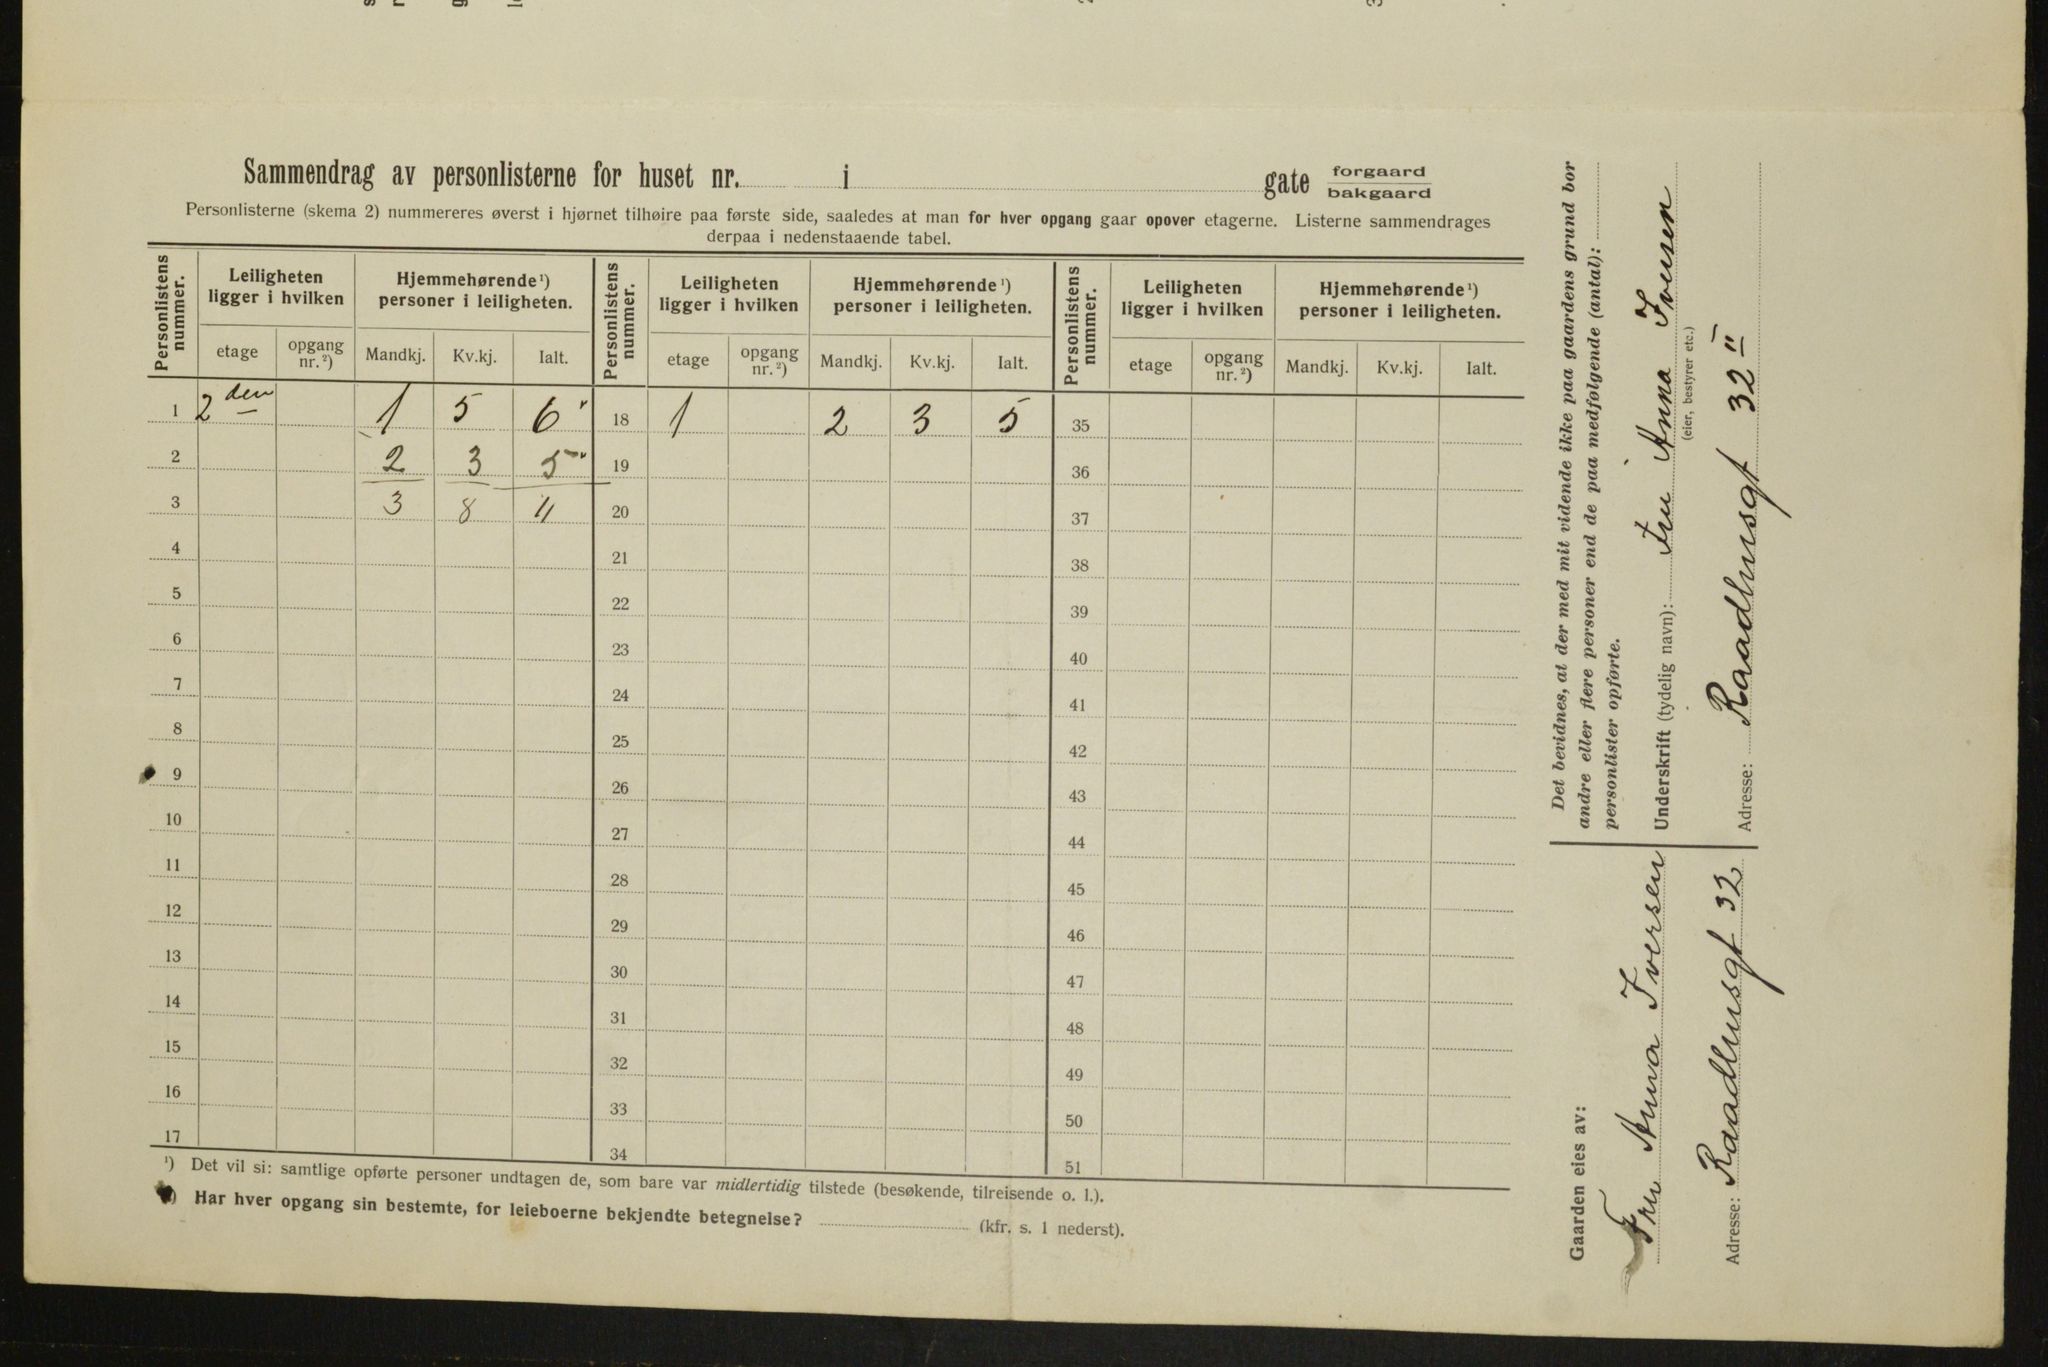 Sammendrag av personlisterne for huset nr. i gate forgaard
bakgaard
Personlisterne (skema 2) nummereres øverst i hjørnet tilhøire paa første side, saaledes at man for hver opgang gaar opover etagerne. Listerne sammendrages
derpaa i nedenstaaende tabel.
Personlistens nummer. Leiligheten ligger i hvilken Hjemmehørende ¹) personer i leiligheten. Personlistens nummer. Leiligheten ligger i hvilken Hjemmehørende ¹) personer i leiligheten. Personlistens nummer. Leiligheten ligger i hvilken Hjemmehørende ¹) personer i leiligheten.
etage opgang nr. ²) Mandkj. Kv.kj. Ialt. etage opgang nr. ²) Mandkj. Kv.kj. Ialt. etage opgang nr. ²) Mandkj. Kv.kj. Ialt.
1 2 den 1 5 6 18 1 2 3 5 35
2 2 3 5 19 36
3 3 8 11 20 37
4 21 38
5 22 39
6 23 40
7 24 41
8 25 42
9 26 43
10 27 44
11 28 45
12 29 46
13 30 47
14 31 48
15 32 49
16 33 50
17 34 51
¹) Det vil si: samtlige opførte personer undtagen de, som bare var midlertidig tilstede (besøkende, tilreisende o. l.).
) Har hver opgang sin bestemte, for leieboerne bekjendte betegnelse? (kfr. s. 1 nederst).
Det bevidnes, at der med mit vidende ikke paa gaardens grund bor
andre eller flere personer end de paa medfølgende (antal):
personlister opførte.
Underskrift (tydelig navn): Fru Anna Iversen
(eier, bestyrer etc.)
Adresse: Raadhusgt 32 II
Gaarden eies av:
Fru Anna Iversen
Adresse: Raadhusgt 32